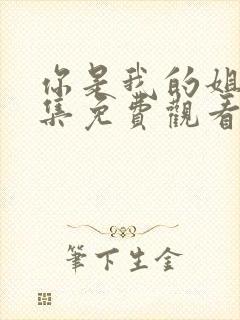 你是我的姐
集免費觀看
筆下生金